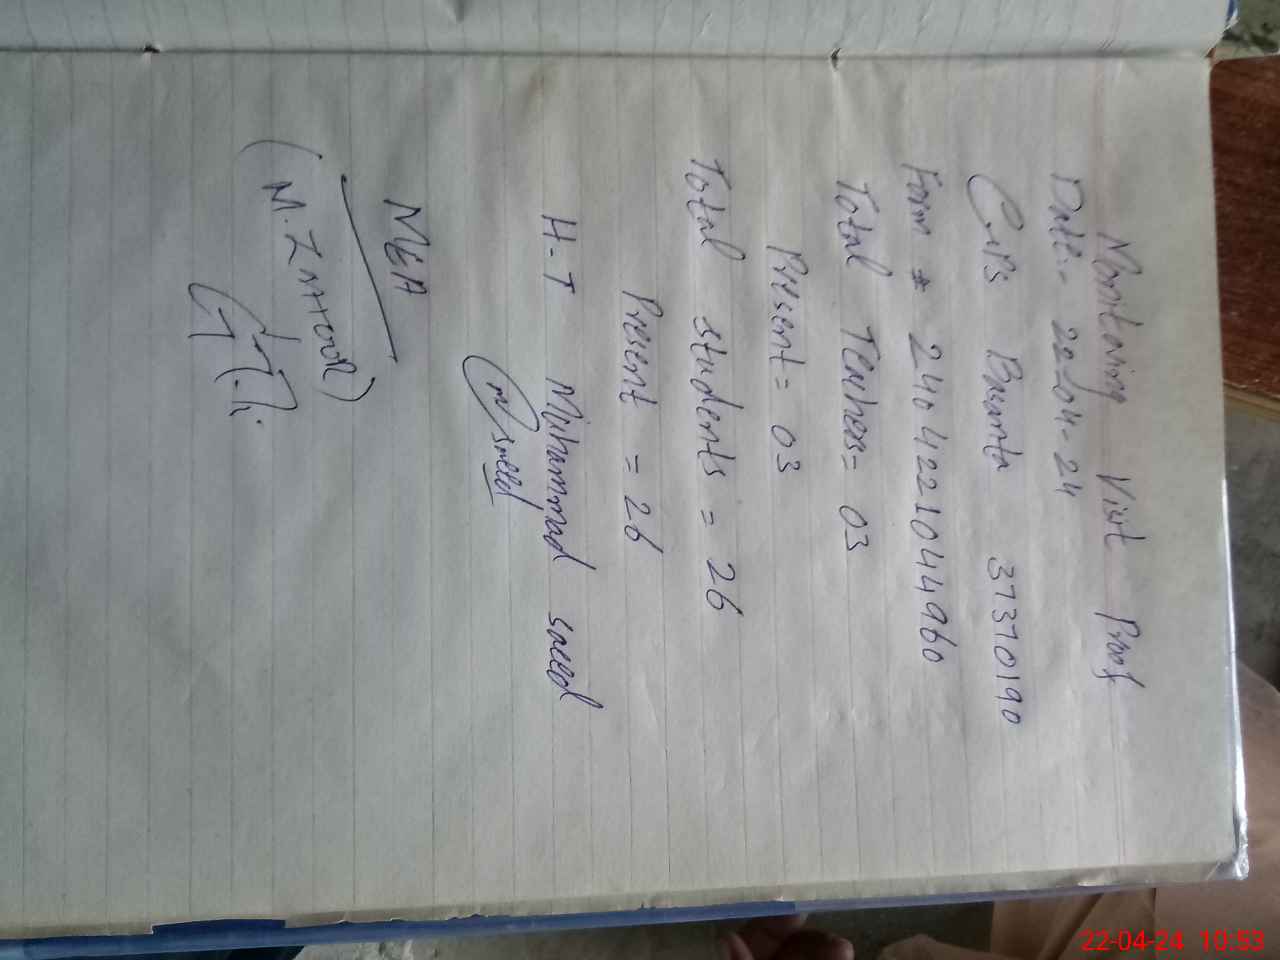 Monitoring Visit Proof
Date:- 22-04-24
GPS 37370190
Form # 2404221044960
Total Teachers = 03
Present = 03
Total students = 26
Present = 26
H-T Muhammad saeed
M saeed
MEA
(M. ZAHOOR)
22-04-24 10:53